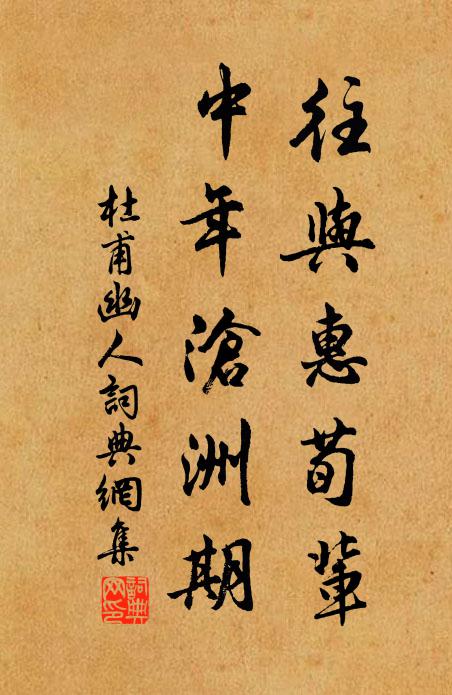 往與惠荀輩
中年滄洲期
杜甫幽人詞典網集
詞典网印